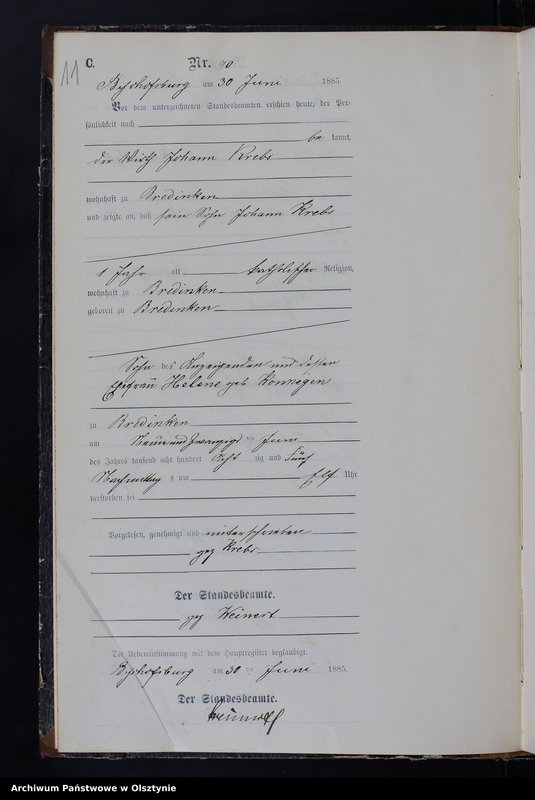 11
C.
Nr. 90
Bischofsburg am 30 Juni 1885.
Vor dem unterzeichneten Standesbeamten erschien heute, der Per-
sönlichkeit nach
be kannt,
der Wirth Johann Krebs
wohnhaft zu Bredinken
und zeigte an, daß sein Sohn Johann Krebs
1 Jahr alt katholischer Religion,
wohnhaft zu Bredinken
geboren zu Bredinken
Sohn des Anzeigenden und dessen
Ehefrau Helene geb
zu Bredinken
am Neunundzwanzigsten Juni
des Jahres tausend acht hundert Acht zig und Fünf
Nachmittag s um Elf Uhr
verstorben sei
Vorgelesen, genehmigt und unterschrieben
gez Krebs
Der Standesbeamte.
gez Weinert
Die Uebereinstimmung mit dem Hauptregister beglaubigt.
Bischofsburg am 30 ten Juni 1885.
Der Standesbeamte.
Archiwum Państwowe w Olsztynie